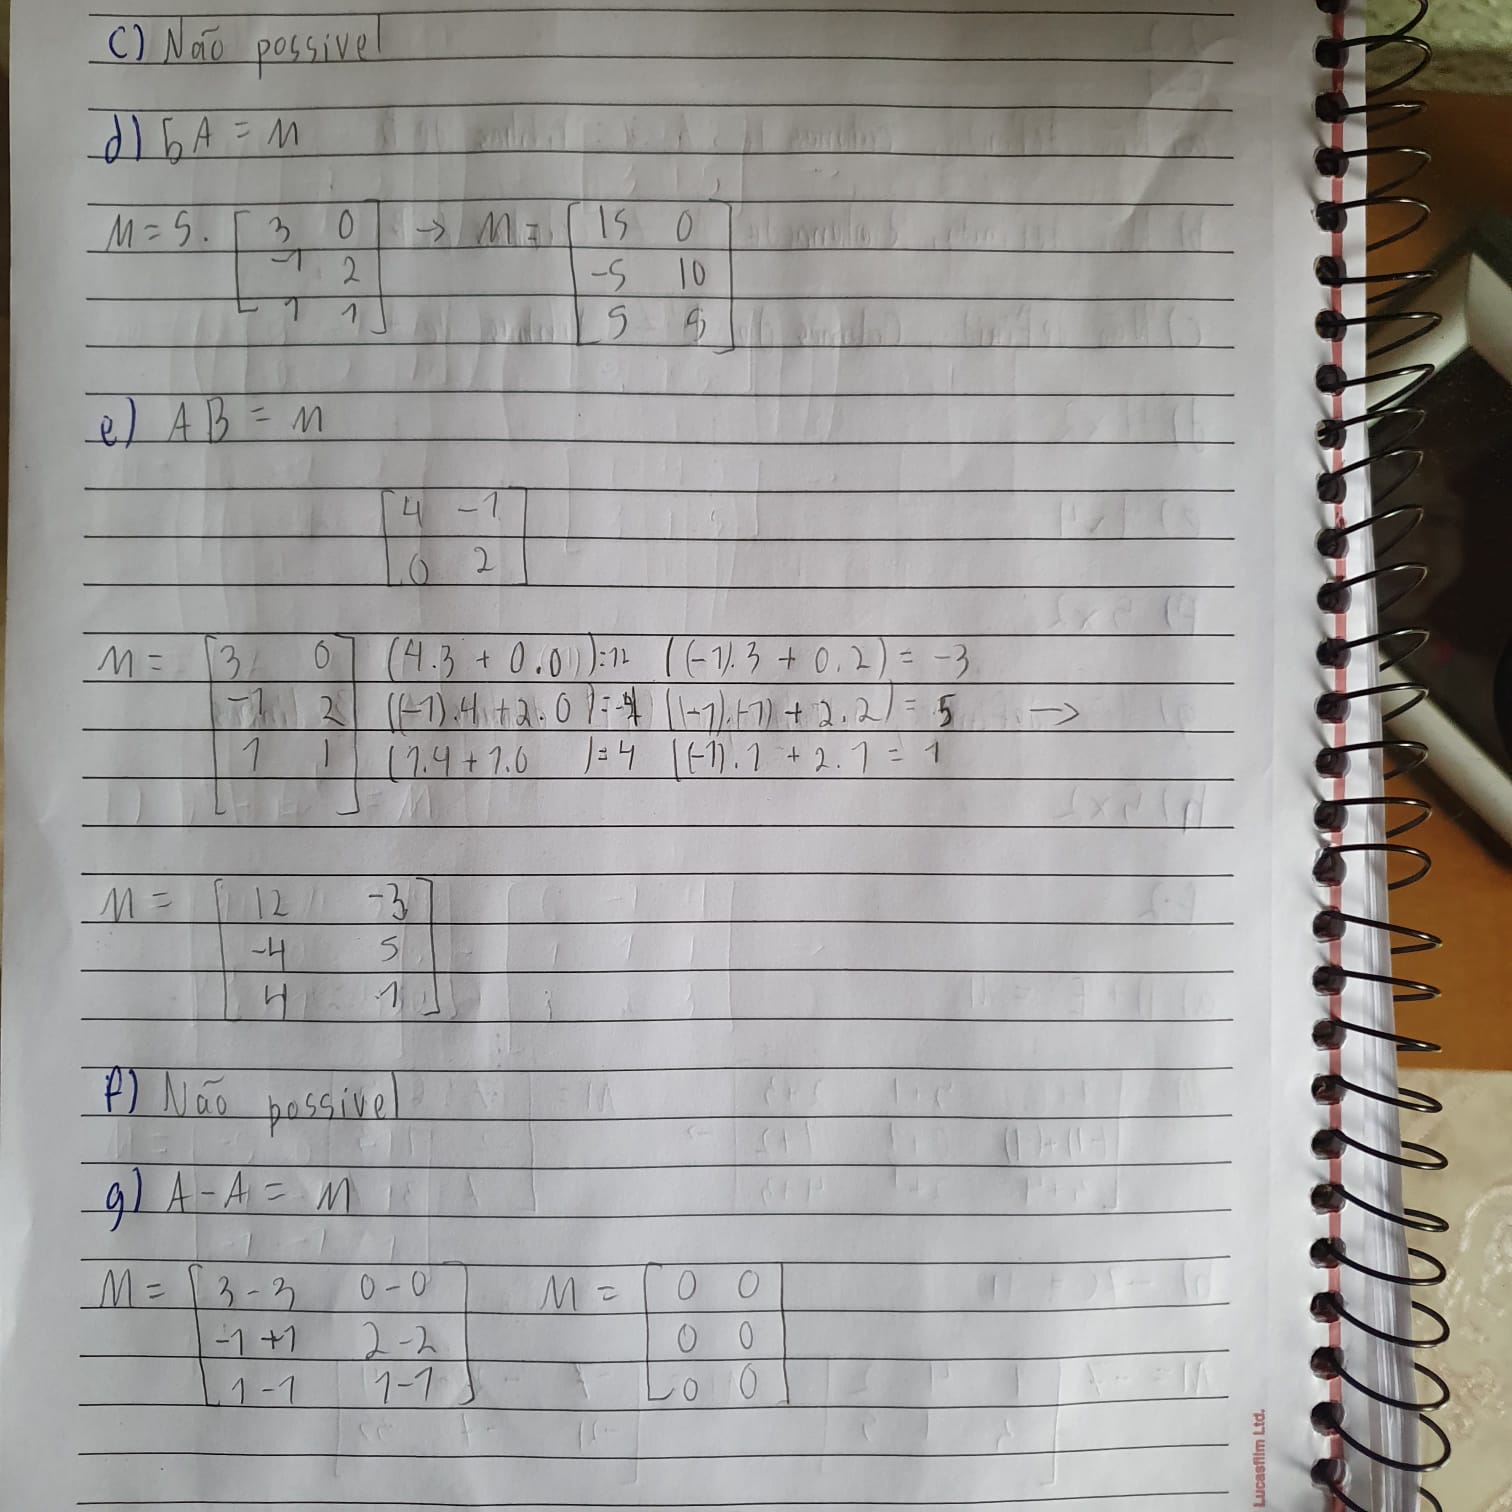 c) Não possivel
d) 5A = M
M = 5. [ 3 0 → M = [ 15 0
-1 2 -5 10
1 1 ] 5 5 ]
e) AB = M
[ 4 -1
0 2 ]
M = [ 3 0 ] (4.3 + 0.0) = 12 ((-1).3 + 0.2) = -3
-1 2 ((-1).4 + 2.0) = -4 ((-1).(-1) + 2.2) = 5 →
1 1 (1.4 + 1.0 ) = 4 ((-1).1 + 2.1 = 1
M = [ 12 -3 ]
-4 5
4 1
f) Não possivel
g) A - A = M
M = [ 3-3 0-0 ] M = [ 0 0 ]
-1+1 2-2 0 0
1-1 1-1 0 0
Lucasfilm Ltd.